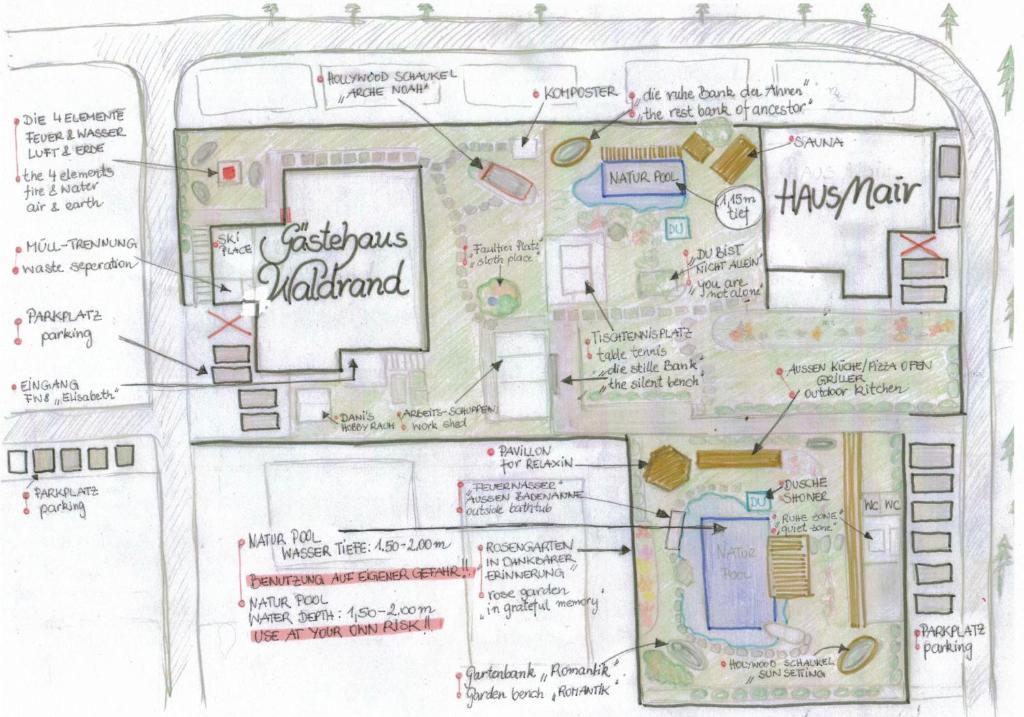 HOLLYWOOD SCHAUKEL
"ARCHE NOAH"
KOMPOSTER
"die ruhe Bank der Ahnen"
"the rest bank of ancestor"
DIE 4 ELEMENTE
FEUER & WASSER
LUFT & ERDE
the 4 elements
fire & water
air & earth
SAUNA
NATUR POOL
1,15m
tief
HAUS Mair
DU
SKI
PLACE
Gästehaus
Waldrand
MÜLL-TRENNUNG
waste seperation
"Faultier Platz"
"sloth place"
"DU BIST
NICHT ALLEIN"
"you are
not alone"
PARKPLATZ
parking
TISCHTENNISPLATZ
table tennis
"die stille Bank"
"the silent bench"
AUSSEN KÜCHE/PIZZA OFEN
GRILLER
outdoor kitchen
EINGANG
FN8 "Elisabeth"
DANI'S
HOBBY RACH
ARBEITS-SCHUPPEN
work shed
PAVILLON
for RELAXIN
PARKPLATZ
parking
"FEUERWASSER"
AUSSEN BADEWANNE
outside bathtub
DUSCHE
SHOWER
DU
WC WC
"RUHE ZONE"
"quiet zone"
NATUR POOL
WASSER TIEFE: 1,50-2,00 m
BENUTZUNG AUF EIGENER GEFAHR!!
NATUR POOL
WATER DEPTH: 1,50-2,00 m
USE AT YOUR OWN RISK!!
"ROSENGARTEN
IN DANKBARER
ERINNERUNG"
"rose garden
in grateful memory"
NATUR
POOL
PARKPLATZ
parking
Gartenbank "Romantik"
Garden bench "ROMANTIK"
HOLYWOOD SCHAUKEL
SUN SETTING